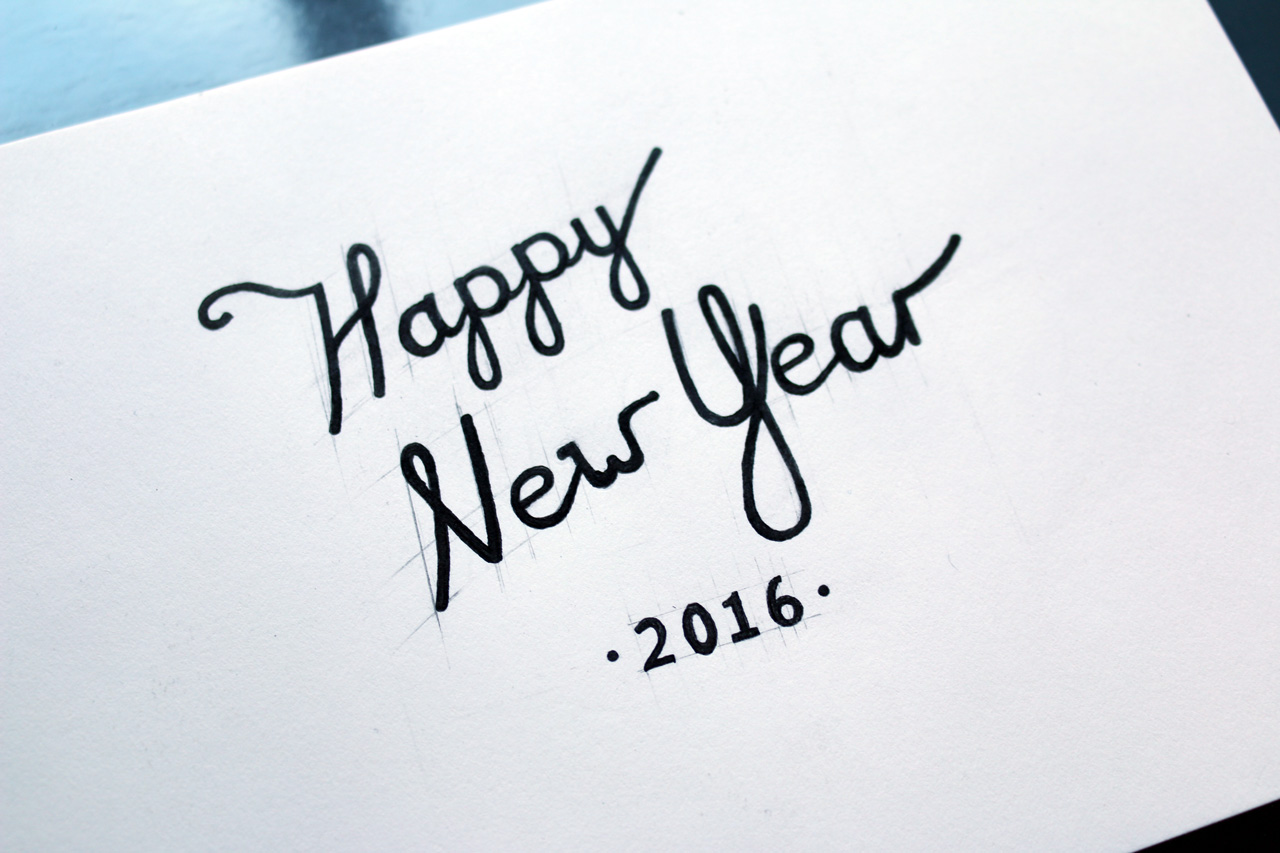 Happy
New Year
·2016·